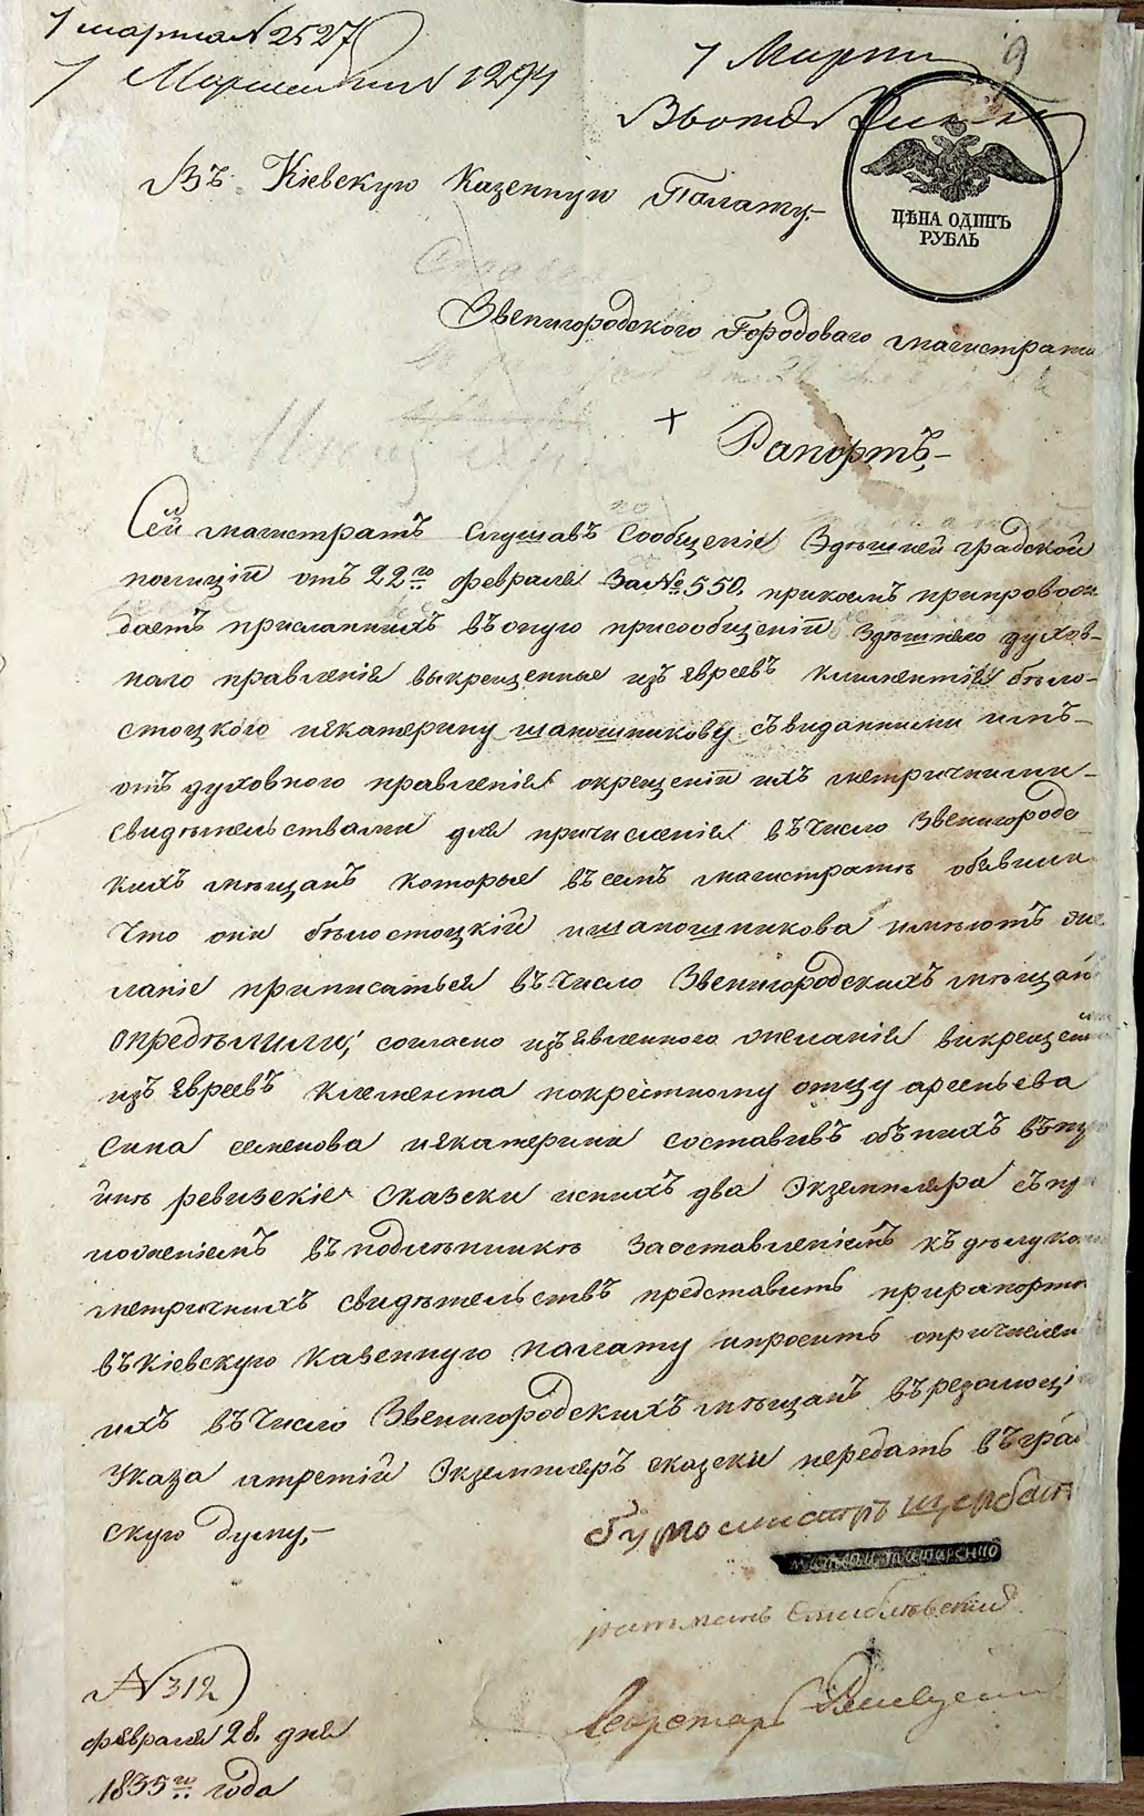 7 марта № 2527
7 Марта 1294
7 Марта 9
Въ Кіевскую Казенную Палату.
ЦѢНА ОДИНЪ
РУБЛЬ
Звенигородского Городоваго магистрата
Рапортъ,
Сей магистратъ слушавъ сообщеніе Здѣшней градской
полиціи отъ 22го февраля За № 550, прикоемъ припровож
даетъ присланныхъ въоную присообщеніи Здѣшнего духов-
наго правленія выкрещенные изъ евреевъ климентія бѣло-
стоцкого иекатерину шапошникову съвиданными имъ-
отъ духовного правленія окрещеніи ихъ метричними-
свидѣтельствами для причисленія въчисло Звенигородс
кихъ мѣщанъ которые въсемъ магистратѣ обявили
что они бѣлостоцкій ишапошникова имѣютъ же
ланіе приписаться въчисло Звенигородскихъ мѣщан
опредѣлили; согласно изъявленного желанія викрещен
изъ евреевъ климента покрестному отцу арсеньева
сина семенова иекатерини составивъ объ нихъ въпу
ревизскіе сказски изнихъ два Экземпляра съпр
ложеніемъ въподлѣнникѣ Заоставленіемъ къдѣлу ко
метричнихъ свидѣтельствъ представить прирапортѣ
въкіевскую казенную палату ипросить опричислен
ихъ въчисло Звенигородскихъ мѣщанъ въ резолюці
указа итретій Экземпляръ сказски передать въград
скую думу,
бургомистръ щербан
ратманъ
Секретарь
№ 312
февраля 28. дня
1835го года